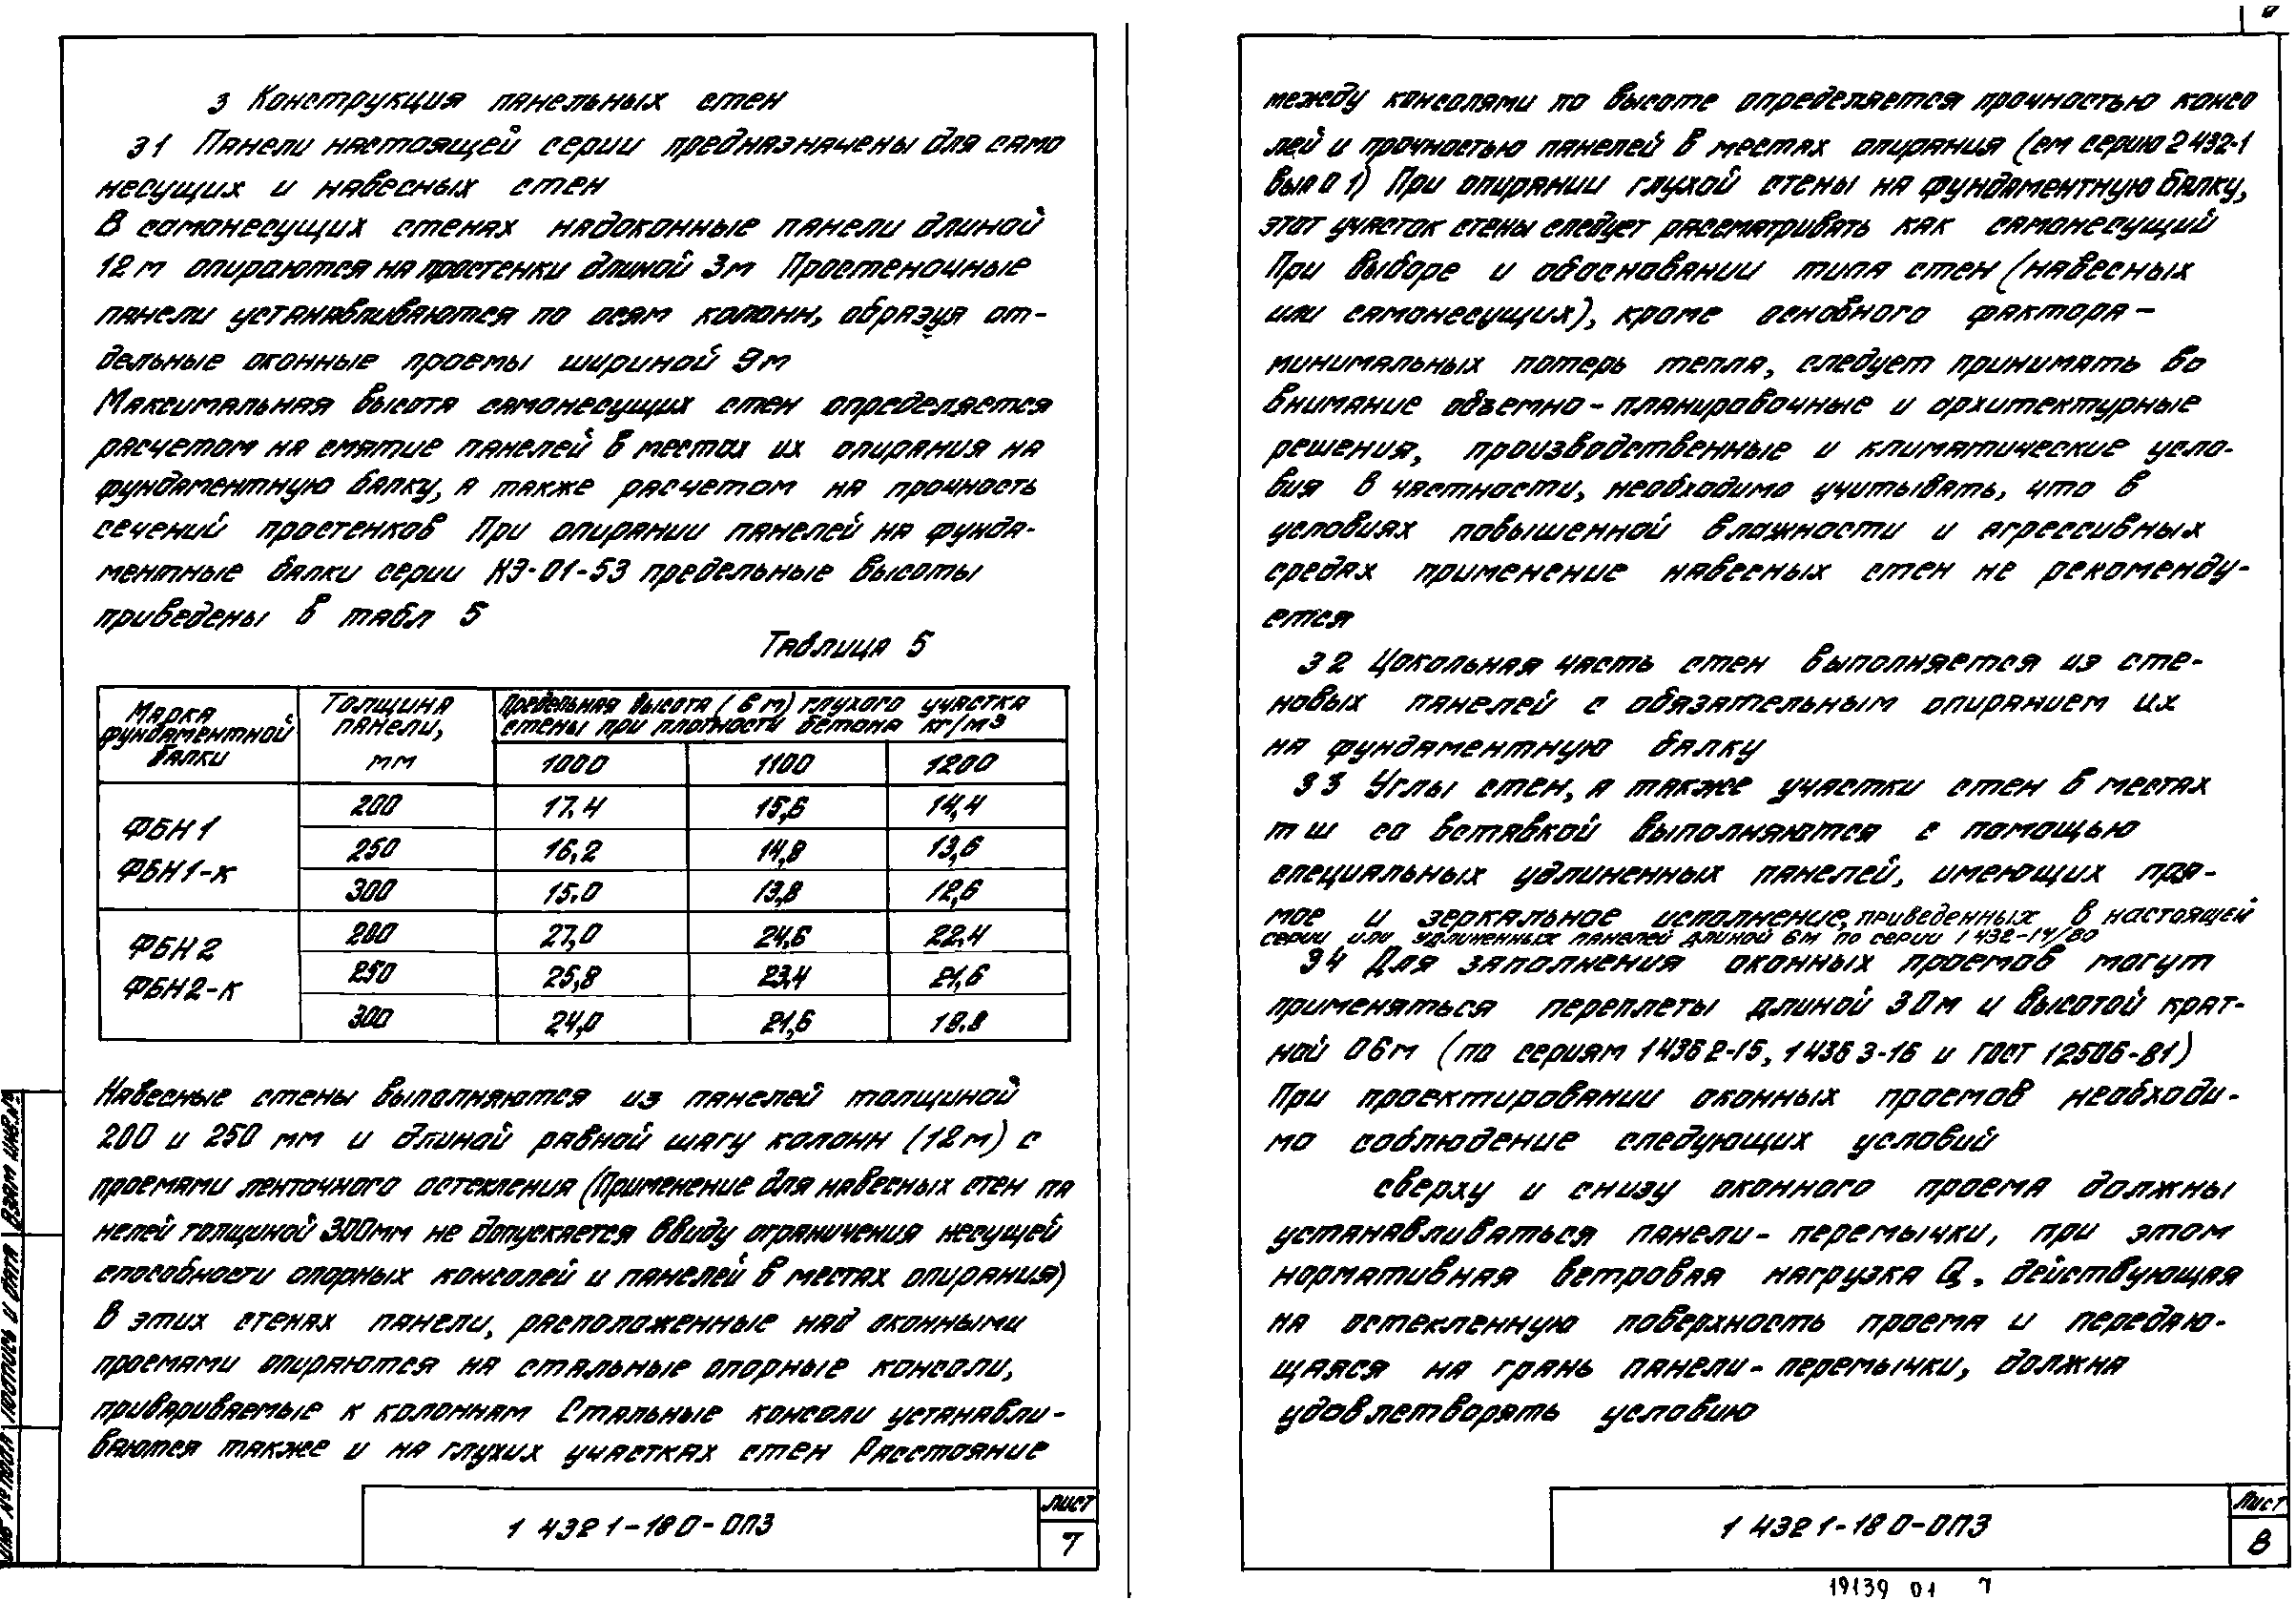 3 Конструкция панельных стен
31 Панели настоящей серии предназначены для само
несущих и навесных стен
В самонесущих стенах надоконные панели длиной
12м опираются на простенки длиной 3м Простеночные
панели устанавливаются по осям колонн, образуя от-
дельные оконные проемы шириной 9м
Максимальная высота самонесущих стен определяется
расчетом на смятие панелей в местах их опирания на
фундаментную балку, а также расчетом на прочность
сечений простенков При опирании панелей на фунда-
ментные балки серии КЭ-01-53 предельные высоты
приведены в табл 5
Таблица 5
Марка фундаментной балки
Толщина панели, мм
Предельная высота (в м) глухого участка
стены при плотности бетона кг/м3
1000 1100 1200
ФБН1
ФБН1-к
200 17.4 15,6 14,4
250 16,2 14,8 13,6
300 15.0 13,8 12,6
ФБН2
ФБН2-к
200 27,0 24,6 22.4
250 25,8 23,4 21,6
300 24,0 21,6 19.8
Навесные стены выполняются из панелей толщиной
200 и 250 мм и длиной равной шагу колонн (12м) с
проемами ленточного остекления (Применение для навесных стен па
нелей толщиной 300мм не допускается ввиду ограничения несущей
способности опорных консолей и панелей в местах опирания)
В этих стенах панели, расположенные над оконными
проемами опираются на стальные опорные консоли,
привариваемые к колоннам Стальные консоли устанавли-
ваются также и на глухих участках стен Расстояние
Взам инв.№
Подпись и дата
Инв № подл
1 432 1-18 0-ОПЗ
Лист
7
между консолями по высоте определяется прочностью консо
лей и прочностью панелей в местах опирания (см серию 2 432-1
вып 0 1) При опирании глухой стены на фундаментную балку,
этот участок стены следует рассматривать как самонесущий
При выборе и обосновании типа стен (навесных
или самонесущих), кроме основного фактора –
минимальных потерь тепла, следует принимать во
внимание объемно-планировочные и архитектурные
решения, производственные и климатические усло-
вия В частности, необходимо учитывать, что в
условиях повышенной влажности и агрессивных
средах применение навесных стен не рекоменду-
ется
32 Цокольная часть стен выполняется из сте-
новых панелей с обязательным опиранием их
на фундаментную балку
33 Углы стен, а также участки стен в местах
т ш со вставкой выполняются с помощью
специальных удлиненных панелей, имеющих пря-
мое и зеркальное исполнение, приведенных в настоящей
серии или удлиненных панелей длиной 6м по серии 1 432-14/80
34 Для заполнения оконных проемов могут
применяться переплеты длиной 3 0м и высотой крат-
ной 06м (по сериям 1 436 2-15, 1 436 3-16 и ГОСТ 12506-81)
При проектировании оконных проемов необходи-
мо соблюдение следующих условий
сверху и снизу оконного проема должны
устанавливаться панели-перемычки, при этом
нормативная ветровая нагрузка Q, действующая
на остекленную поверхность проема и передаю-
щаяся на грань панели-перемычки, должна
удовлетворять условию
1 432 1-18 0-ОПЗ
Лист
8
19139 01 7